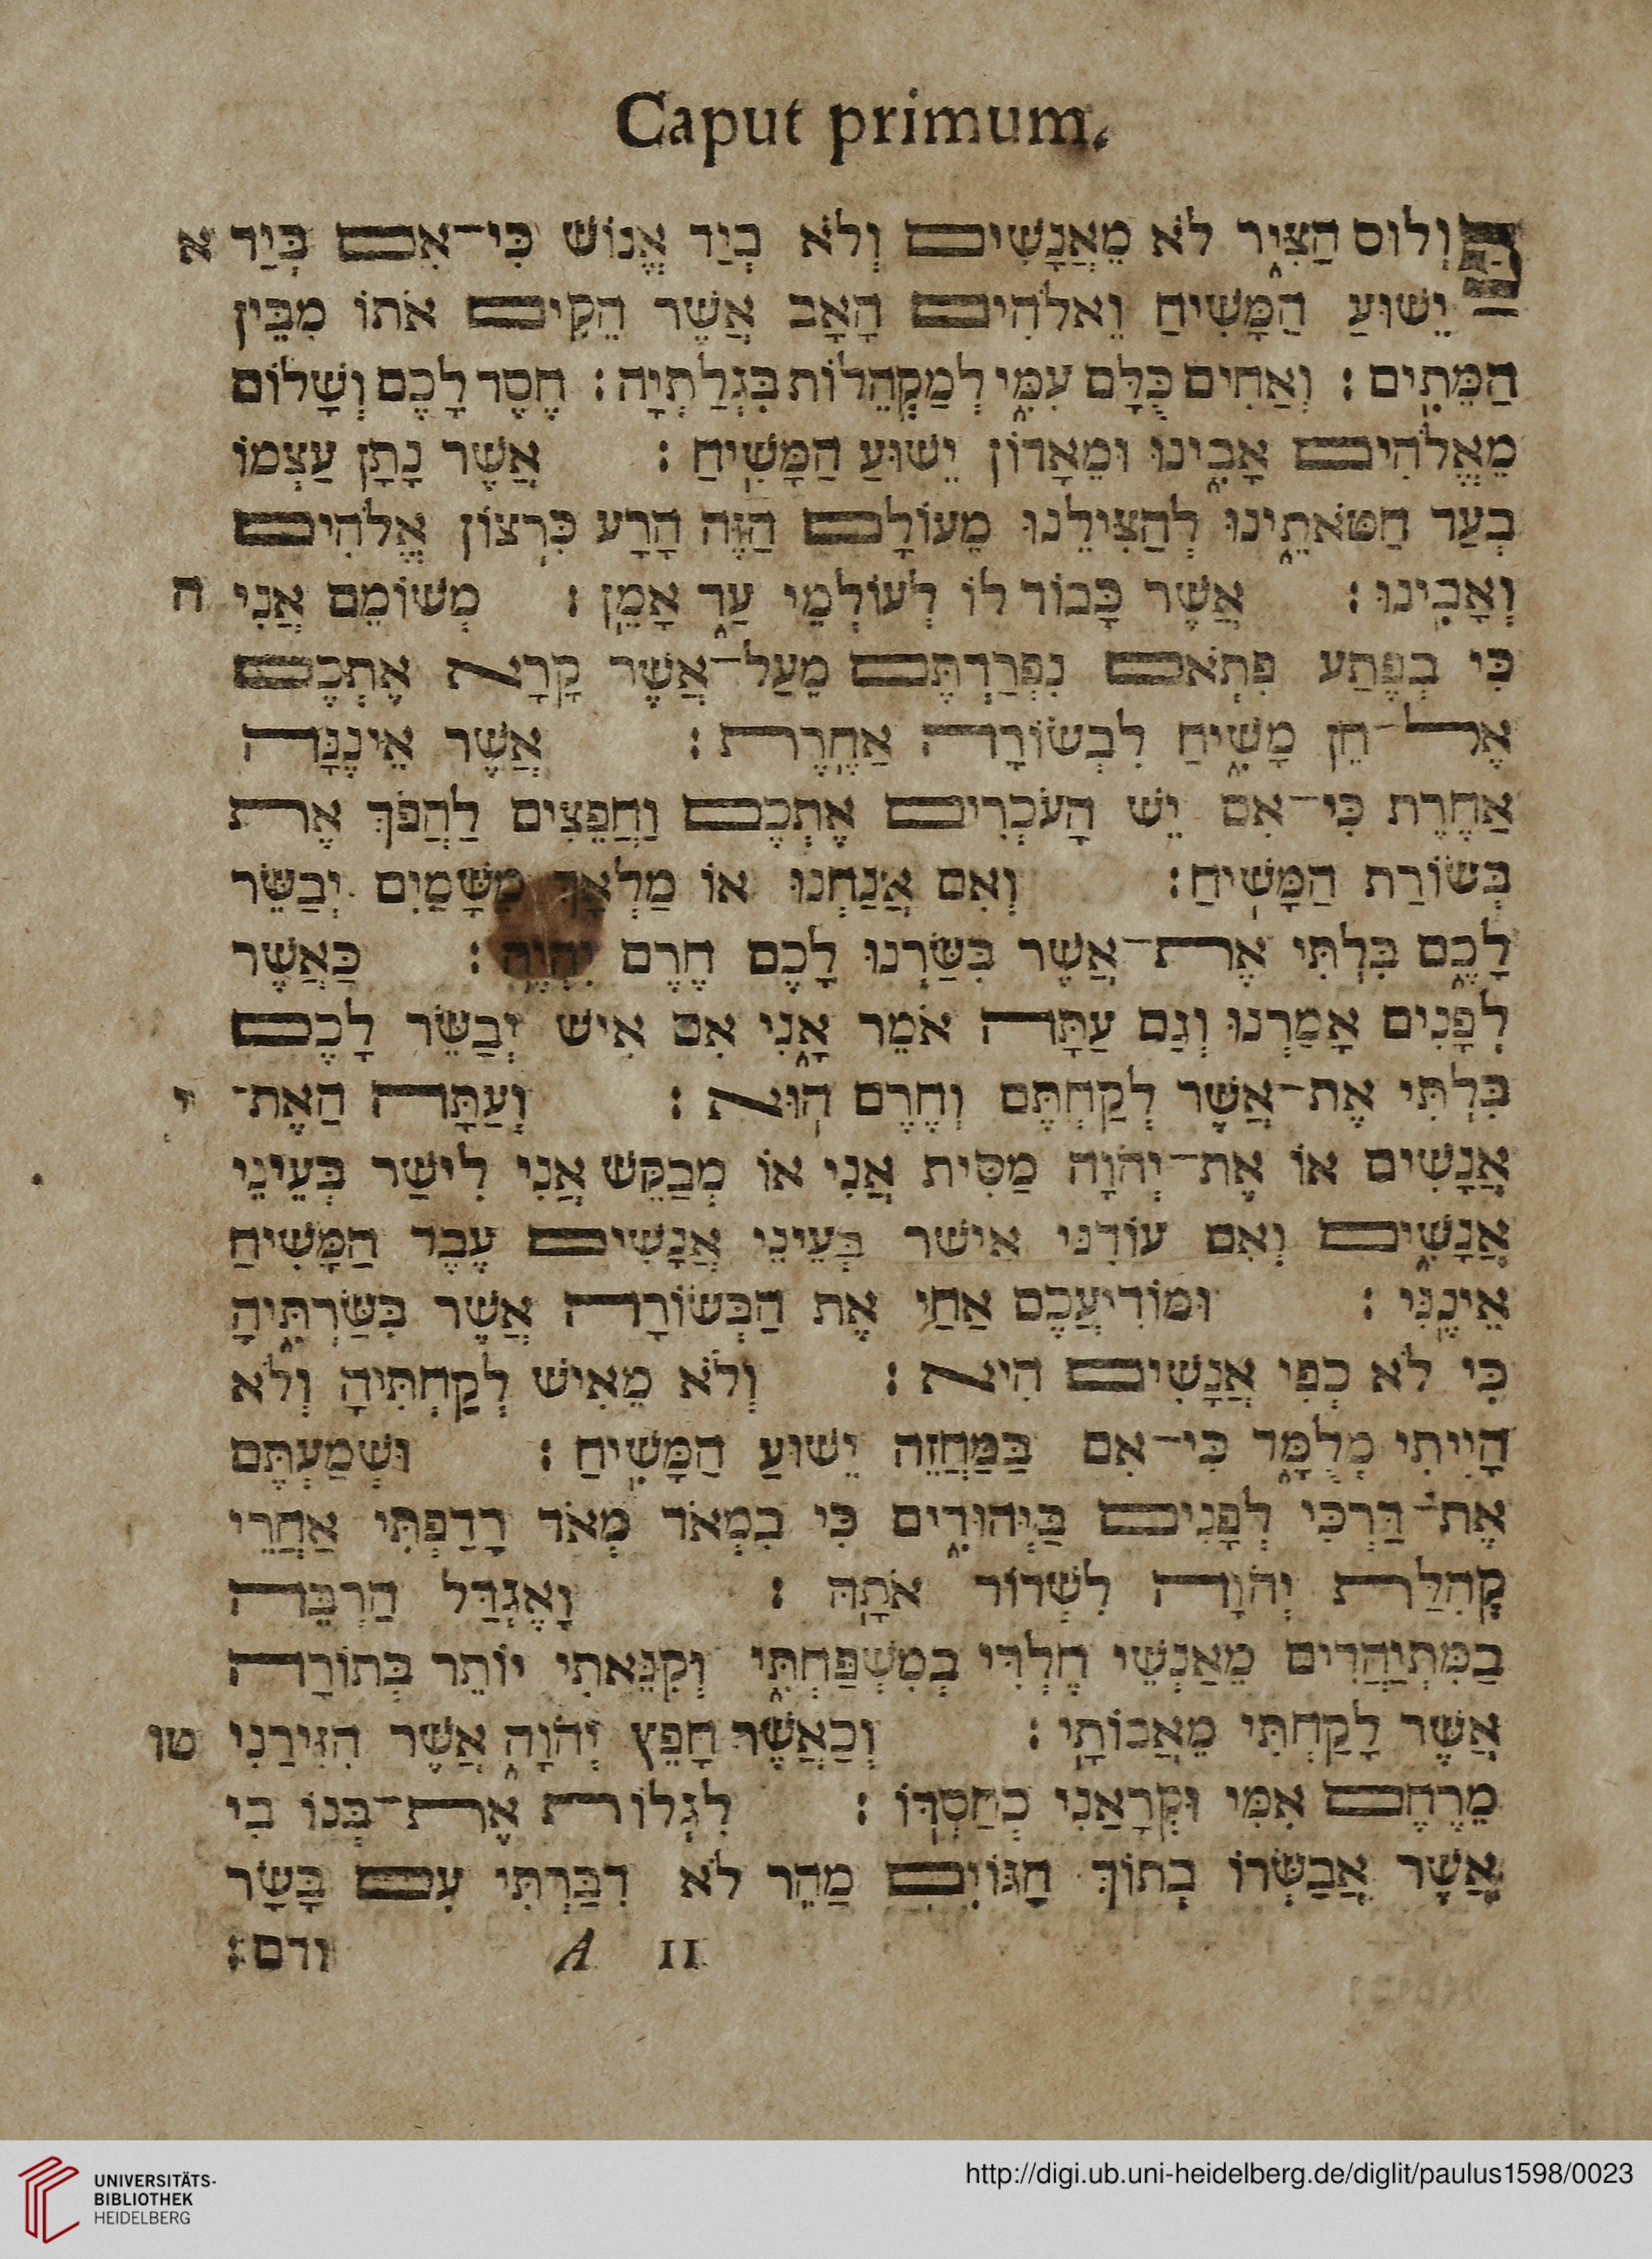 Caput primum.
פַּוְלוּס הַצִּיר לֹא מֵאֲנָשִׁים וְלֹא בְיַד אֱנוֹשׁ כִּי־אִם בְּיַד א
יֵשׁוּעַ הַמָּשִׁיחַ וֵאלֹהִים הָאָב אֲשֶׁר הֵקִים אֹתוֹ מִבֵּין
הַמֵּתִים : וְאַחִים כֻּלָּם עִמִּי לְמַקְהֵלוֹת בִּגְלַתְיָה : חֶסֶד לָכֶם וְשָׁלוֹם
מֵאֱלֹהִים אָבִינוּ וּמֵאָדוֹן יֵשׁוּעַ הַמָּשִׁיחַ : אֲשֶׁר נָתָן עַצְמוֹ
בְעַד חַטֹּאתֵינוּ לְהַצִּילֵנוּ מֵעוֹלָם הַזֶּה הָרָע כִּרְצוֹן אֱלֹהִים
וְאָבִינוּ : אֲשֶׁר כָּבוֹד לוֹ לְעוֹלְמֵי עַד אָמֵן : מְשׁוֹמֵם אֲנִי ה
כִּי בְפֶתַע פִּתְאֹם נִפְרַדְתֶּם מֵעַל־אֲשֶׁר קָרָא אֶתְכֶם
אֶל־חֵן מָשִׁיחַ לִבְשׂוֹרָה אַחֶרֶת : אֲשֶׁר אֵינֶנָּה
אַחֶרֶת כִּי־אִם יֵשׁ הָעֹכְרִים אֶתְכֶם וַחֲפֵצִים לַהֲפֹךְ אֶת
בְּשׂוֹרַת הַמָּשִׁיחַ : וְאִם אֲנַחְנוּ אוֹ מַלְאָךְ מִשָּׁמַיִם יְבַשֵּׂר
לָכֶם בִּלְתִּי אֶת־אֲשֶׁר בִּשַּׂרְנוּ לָכֶם חֶרֶם יִהְיֶה : כַּאֲשֶׁר
לְפָנִים אָמַרְנוּ וְגַם עַתָּה אֹמֵר אָנִי אִם אִישׁ יְבַשֵּׂר לָכֶם
בִּלְתִּי אֶת־אֲשֶׁר לְקַחְתֶּם וְחֶרֶם הוּא : וְעַתָּה הַאֶת־ י
אֲנָשִׁים אוֹ אֶת־יְהֹוָה מַסִּית אֲנִי אוֹ מְבַקֵּשׁ אֲנִי לִישַׁר בְּעֵינֵי
אֲנָשִׁים וְאִם עוֹדֶנִּי אִישַׁר בְּעֵינֵי אֲנָשִׁים עֶבֶד הַמָּשִׁיחַ
אֵינֶנִּי : וּמוֹדִיעֲכֶם אַחַי אֶת הַבְּשׂוֹרָה אֲשֶׁר בִּשַּׂרְתִּיהָ
כִּי לֹא כְפִי אֲנָשִׁים הִיא : וְלֹא מֵאִישׁ לְקַחְתִּיהָ וְלֹא
הָיִיתִי מְלֻמָּד כִּי־אִם בַּמַּחֲזֵה יֵשׁוּעַ הַמָּשִׁיחַ : וּשְׁמַעְתֶּם
אֶת־דַּרְכִּי לְפָנִים בַּיְּהוּדִים כִּי בִמְאֹד מְאֹד רָדַפְתִּי אַחֲרֵי
קְהִלַּת יְהֹוָה לִשְׁדוֹד אֹתָהּ : וָאֶגְדַּל הַרְבֵּה
בַמִּתְיַהֲדִים מֵאַנְשֵׁי חֶלְדִּי בְמִשְׁפַּחְתִּי וְקִנֵּאתִי יוֹתֵר בְּתוֹרָה
אֲשֶׁר לָקַחְתִּי מֵאֲבוֹתָי : וְכַאֲשֶׁר חָפֵץ יְהֹוָה אֲשֶׁר הִזִּירַנִי טו
מֵרֶחֶם אִמִּי וּקְרָאַנִי כְּחַסְדּוֹ : לִגְלוֹת אֶת־בְּנוֹ בִי
אֲשֶׁר אֲבַשְּׂרוֹ בְּתוֹךְ הַגּוֹיִם מַהֵר לֹא דִבַּרְתִּי עִם בָּשָׂר
A 11 ודם :
UNIVERSITÄTS-
BIBLIOTHEK
HEIDELBERG
http://digi.ub.uni-heidelberg.de/diglit/paulus1598/0023